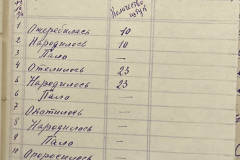 № п/п Количество штук
1 Ожеребилась 10
2 Народилось 10
3 Пало —
4 Отелилось 23
5 Народилось 23
6 Пало —
7 Окотилось —
8 Народилось —
9 Пало —
10 Опоросилось